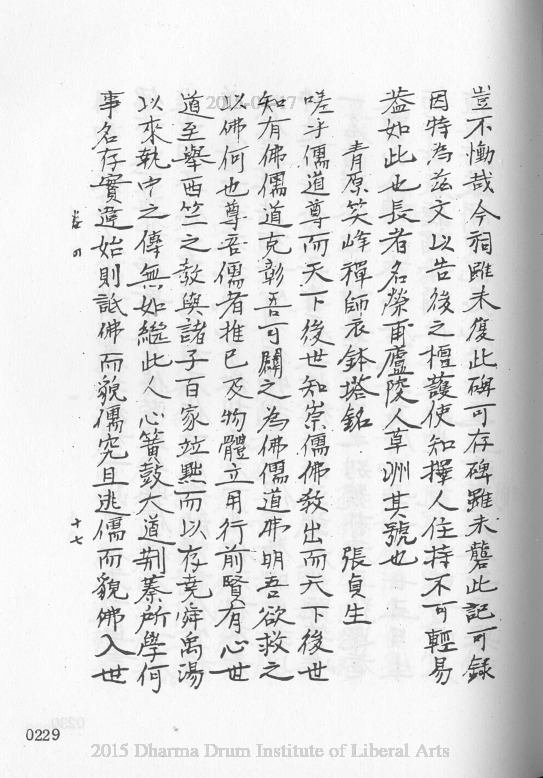 豈不慟哉今祠雖未復此碑可存碑雖未礱此記可錄
因特為茲文以告後之檀護使知擇人住持不可輕易
葢如此也長者名榮甫廬陵人草洲其號也
青原笑峰禪師衣鉢塔銘 張貞生
嗟乎儒道尊而天下後世知崇儒佛教出而天下後世
知有佛儒道克彰吾可闢之為佛儒道弗明吾欲救之
以佛何也尊吾儒者推已及物體立用行前賢有心世
道至舉西竺之教與諸子百家竝黜而以存堯舜禹湯
以來執中之傳無如繼此人心簧鼓大道荆蓁所學何
事名存實違始則詆佛而貌儒究且逃儒而貌佛入世
卷四
十七
0229
2015 Dharma Drum Institute of Liberal Arts